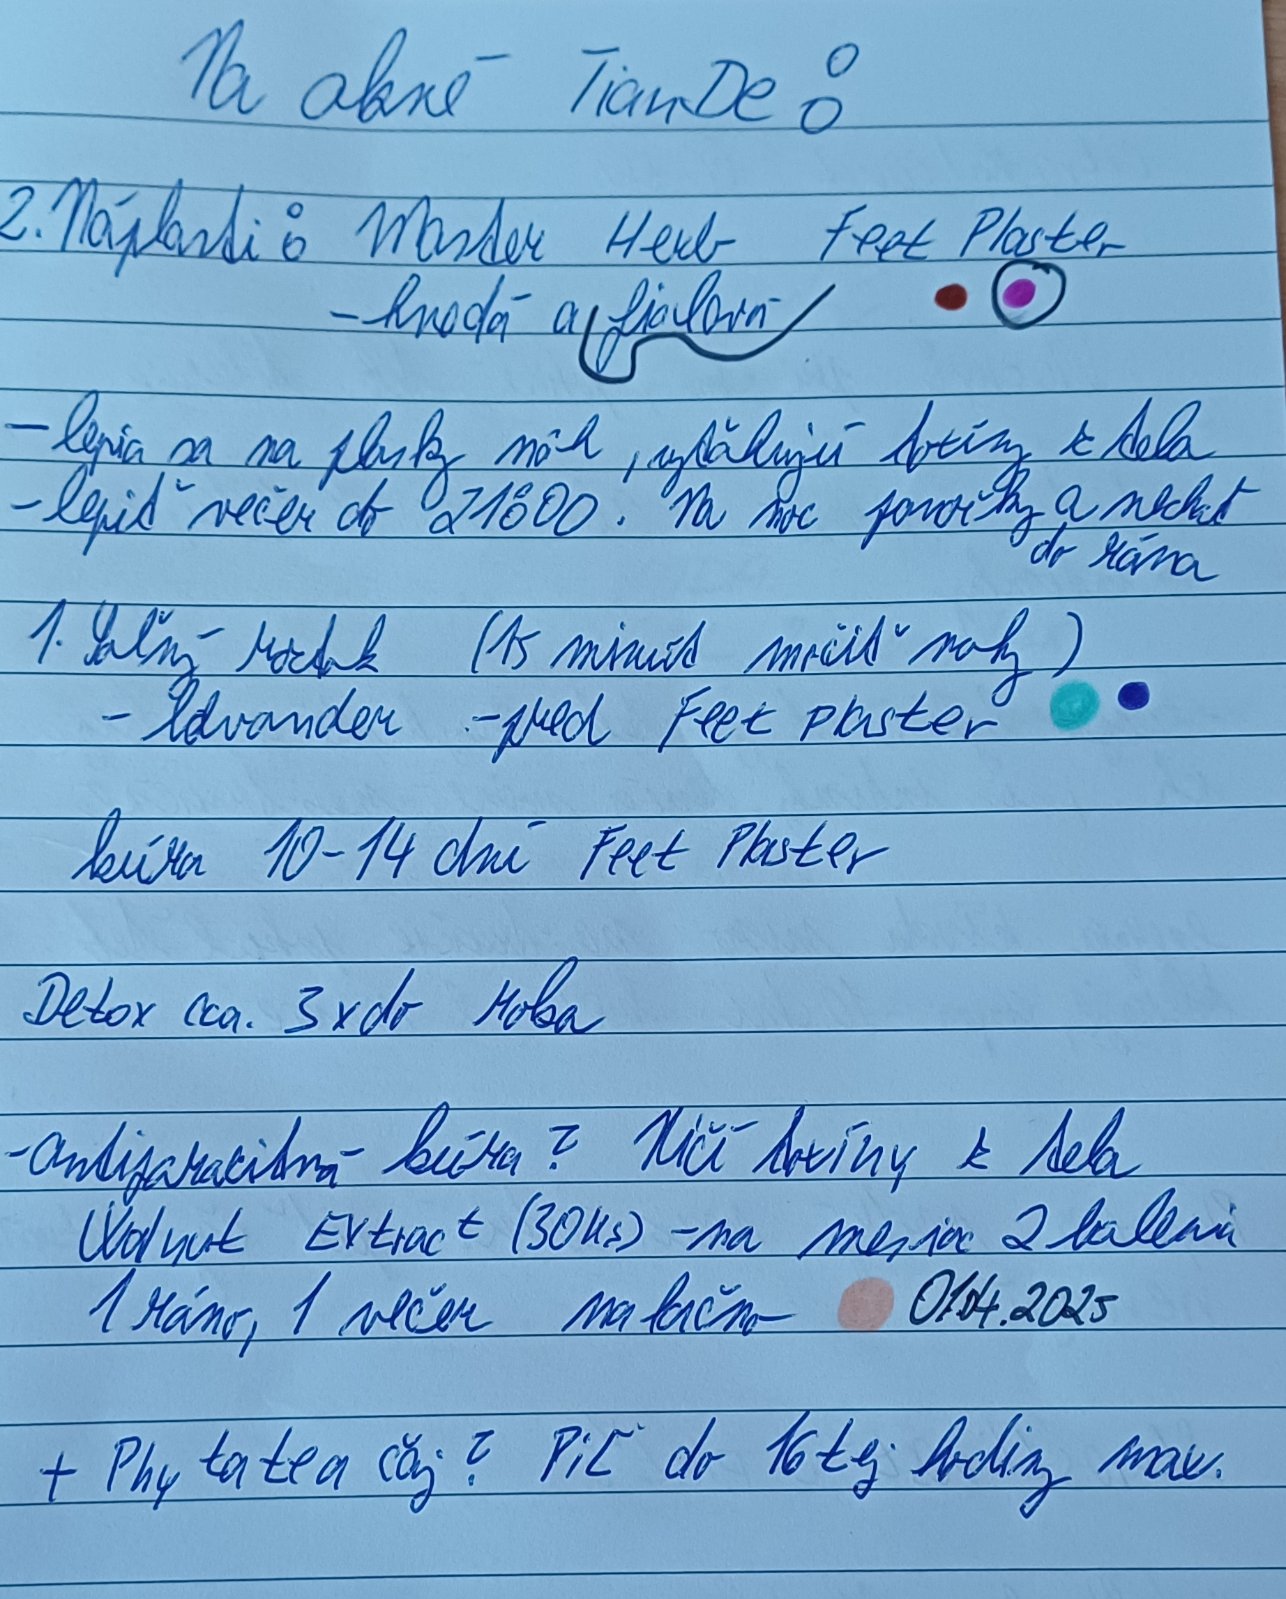 Na akné TianDe:
2. Náplasti: Master Herb Feet Plaster
- hnedá a fialová
- lepia sa na plosky nôh, vyťahujú toxíny z tela
- lepiť večer do 21:00. Na noc ponožky a nechať
do rána
1. Soľný roztok (15 minút močiť nohy)
- pred Feet Plaster
kúra 10-14 dní Feet Plaster
Detox cca. 3x do roka
- antiparazitná kúra? Ničí toxíny z tela
Walnut Extract (30ks) - na mesiac 2 balenia
1 ráno, 1 večer nalačno 01.04.2025
+ Phytatea čaj? Piť do 16tej hodiny max.